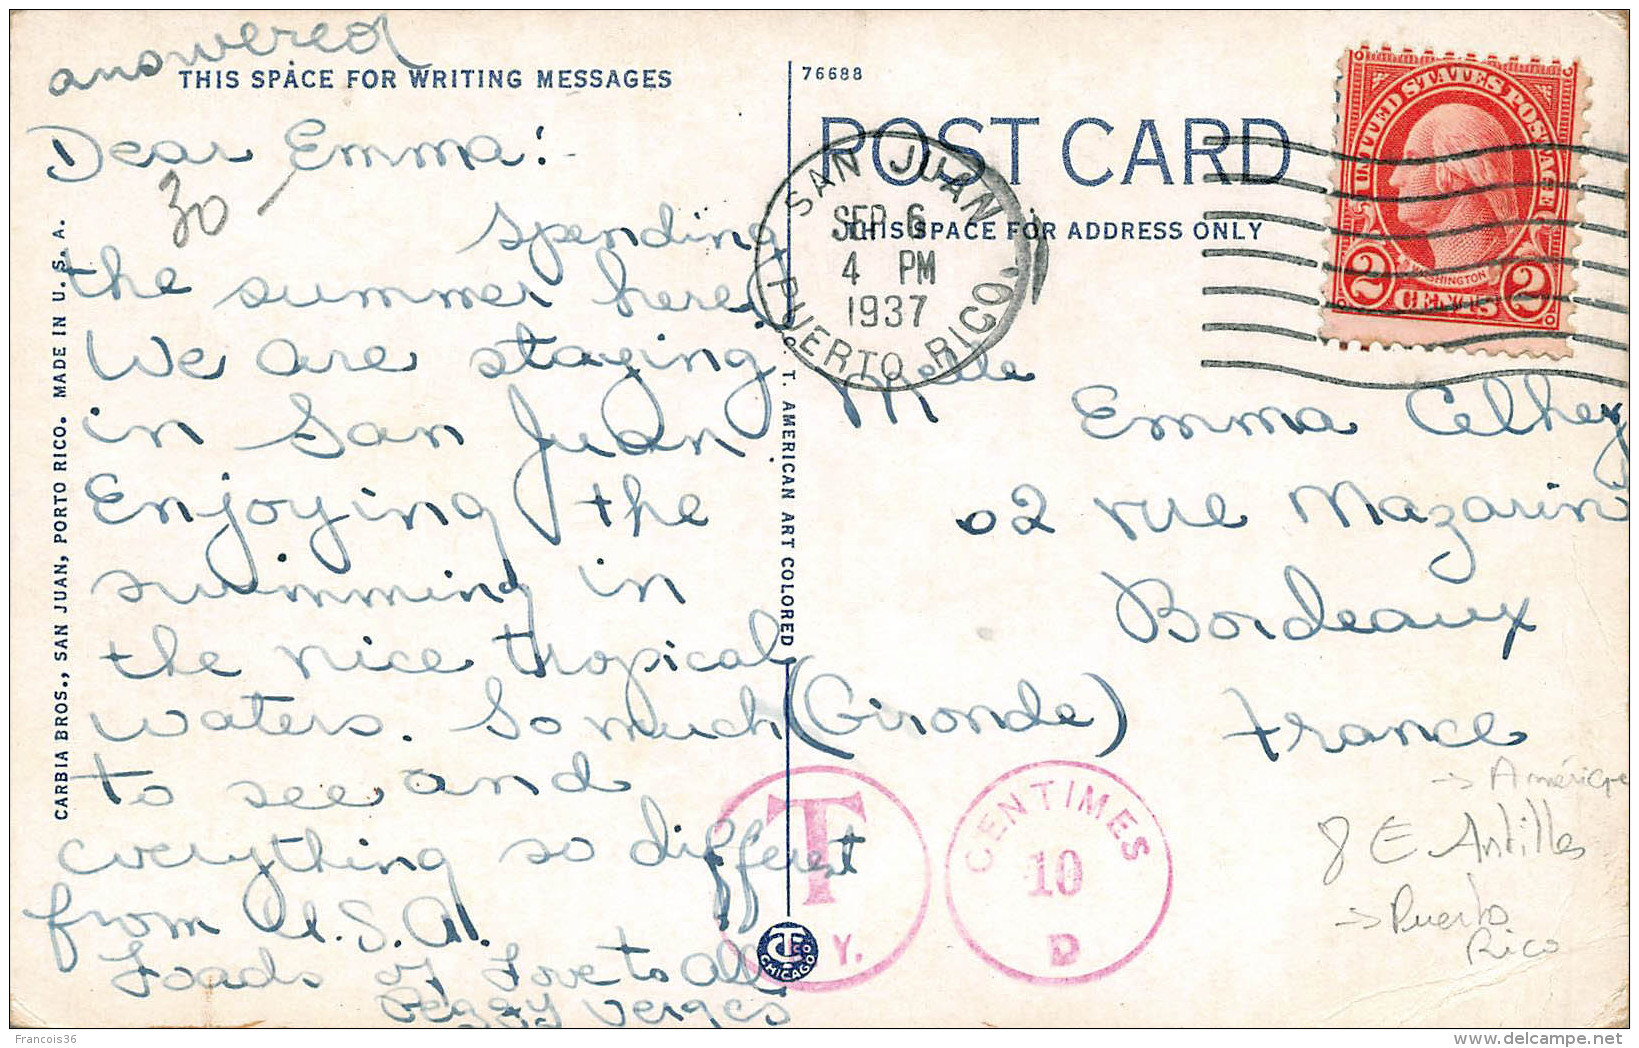 answered
THIS SPACE FOR WRITING MESSAGES
Dear Emma!
30
Spending
the summer here.
We are staying
in San Juan
Enjoying the
swimming in
the nice tropical
waters. So much
to see and
everything so different
from U.S.A.
Loads of Love to all
Peggy Verges
CARBIA BROS., SAN JUAN, PORTO RICO. MADE IN U. S. A.
C. T. AMERICAN ART COLORED
CHICAGO
76688
POST CARD
THIS SPACE FOR ADDRESS ONLY
SAN JUAN
SEP 6
4 PM
1937
PUERTO RICO
UNITED STATES POSTAGE
WASHINGTON
2 CENTS 2
Melle Emma Celhay
02 rue Mazarin
Bordeaux
(Gironde) France
T
Y.
CENTIMES
10
D
→ Amérique
8 E Antilles
→ Puerto
Rico
Francois36
delcampe.net